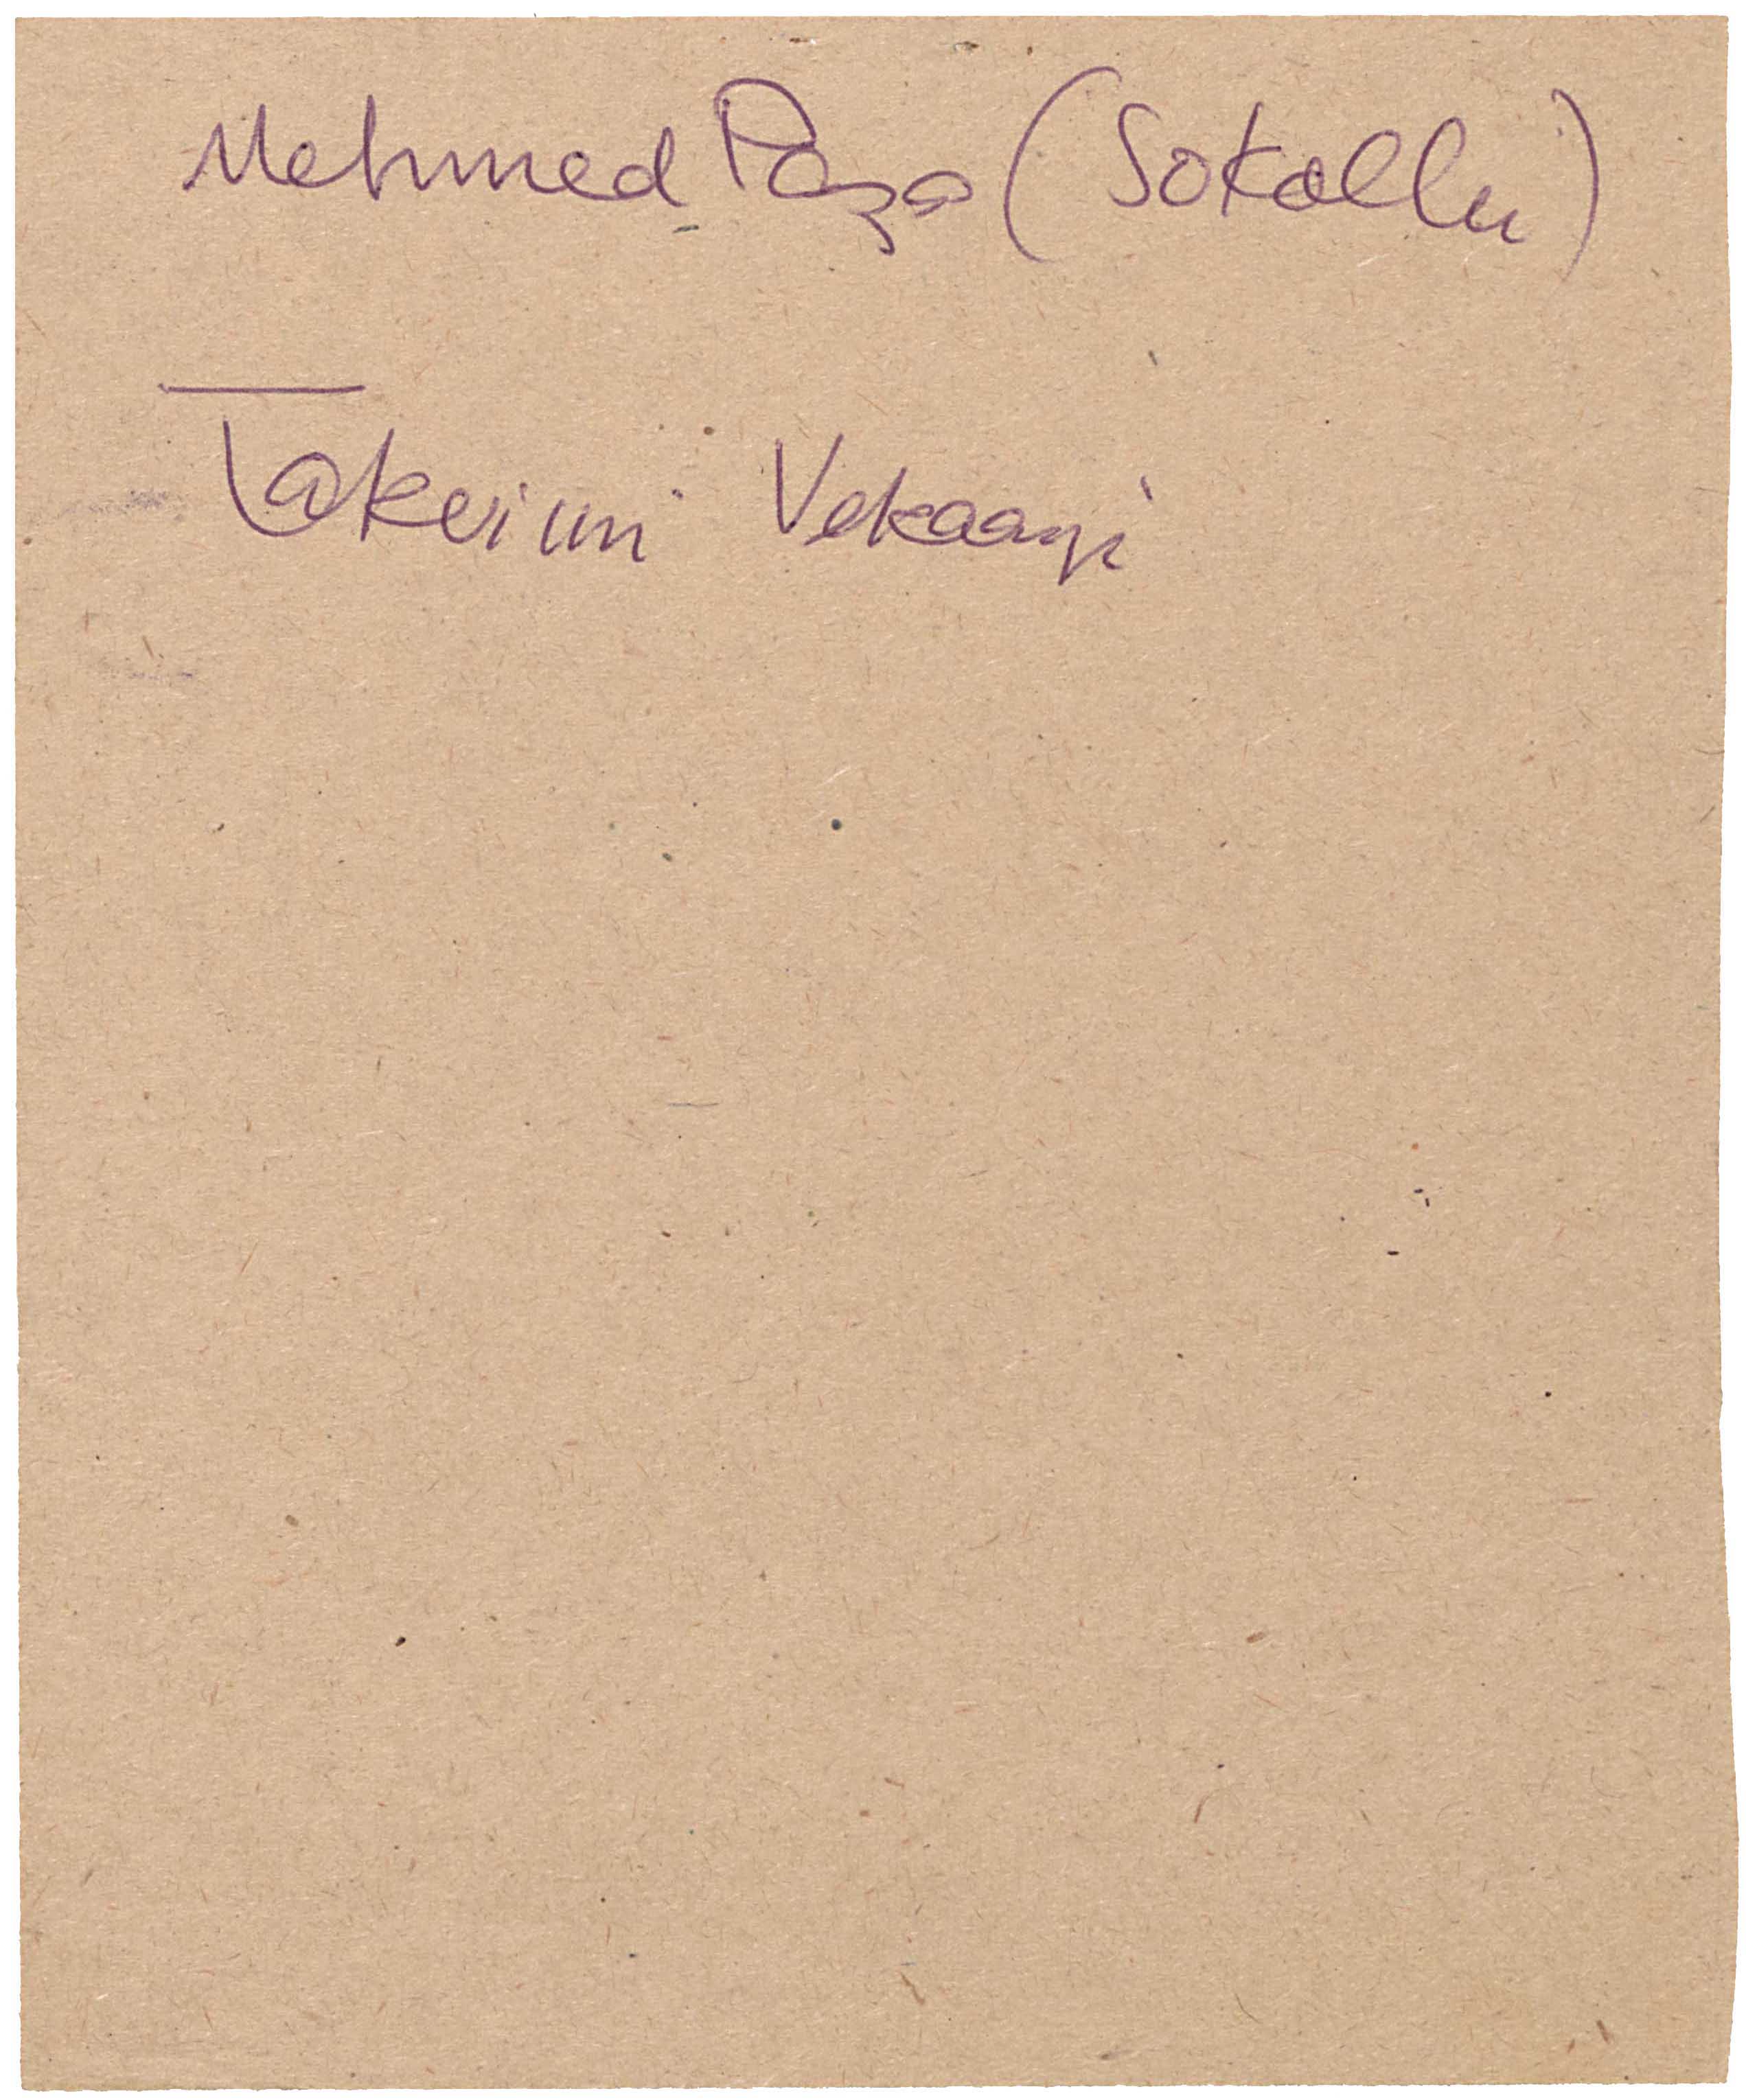 Mehmed Paşa (Sokollu)
Takvimi Vekaayi